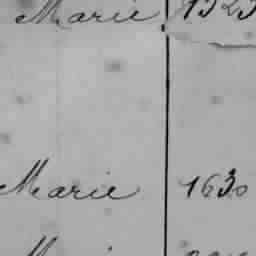 Marie 1523
Marie 1630